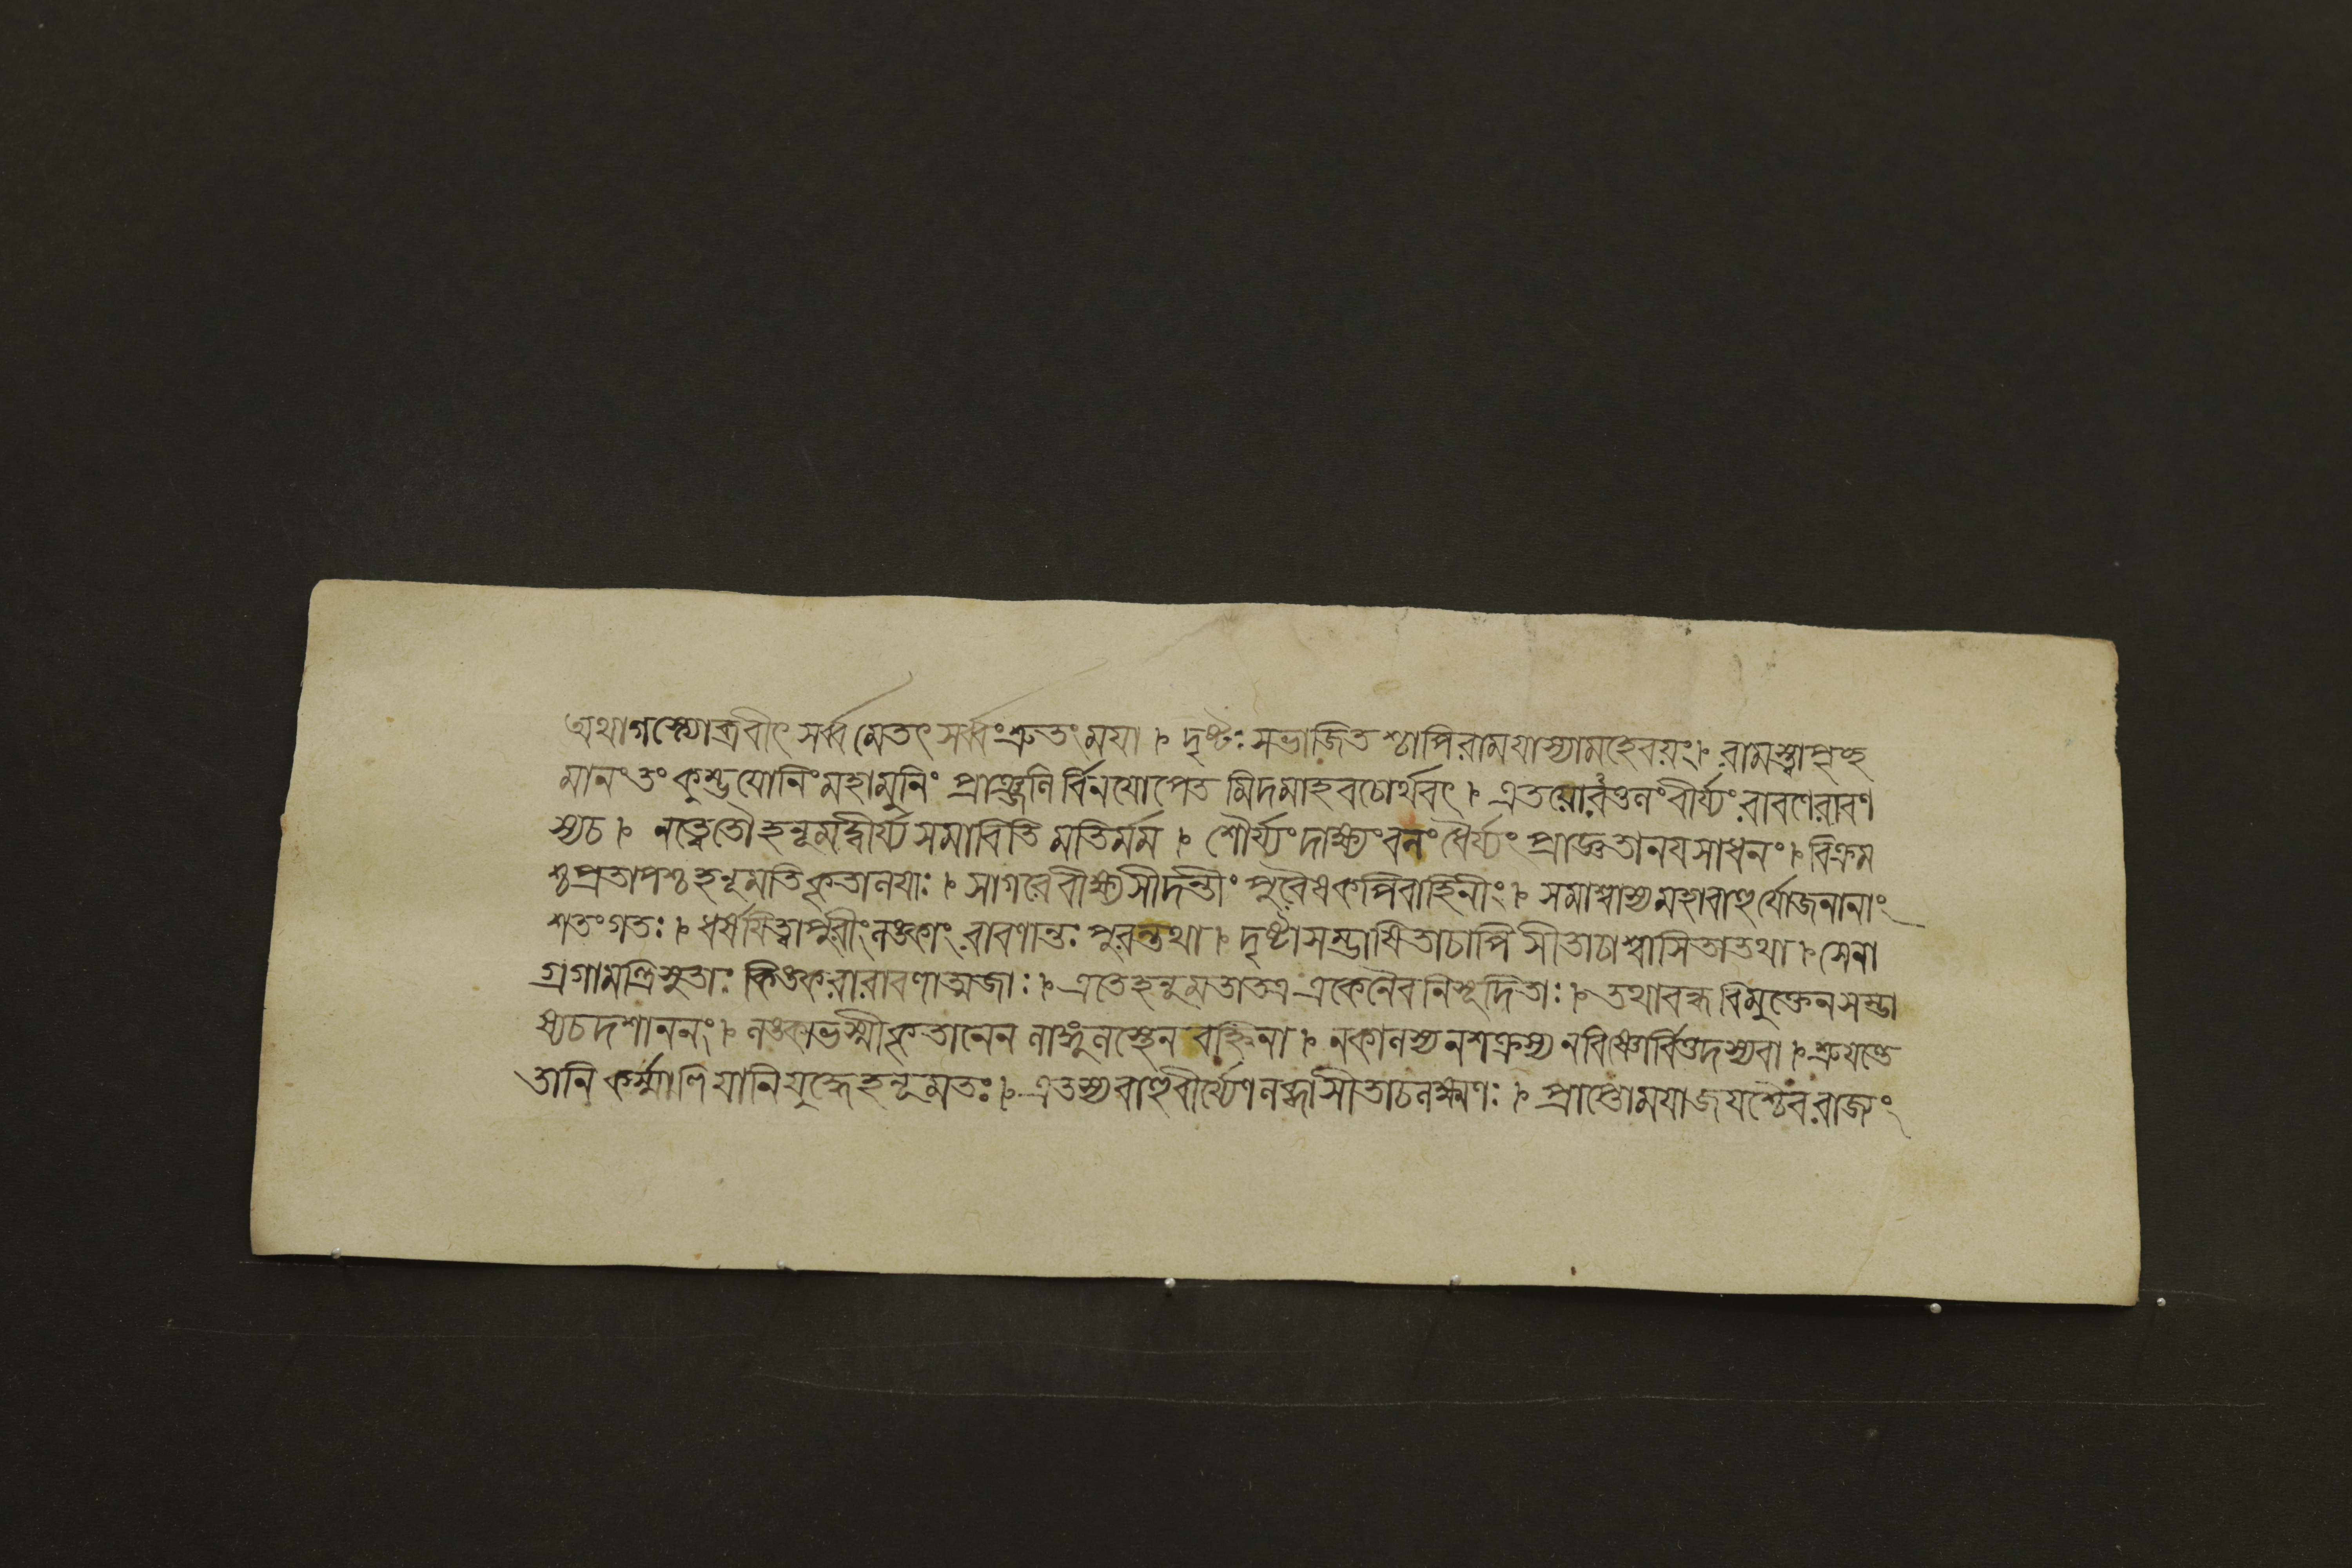 অথাগস্ত্যোব্রবীৎ সর্ব্বমেতৎ সর্ব্বংশ্রুতং ময়া ৷ দৃষ্টঃ সভাজিতশ্চাপিরাময়াস্যামহেবয়ং ৷ রামস্ত্বাপৃচ্ছ
মানংতং কুম্ভযোনিং মহামুনিং প্রাঞ্জলির্বিনয়োপেত মিদমাহবচোর্থবৎ ৷ এতয়োরতুলংবীর্য্যং রাবণেরাবণ
স্যচ ৷ নত্বেতৌহনূমদ্বীর্য্য সমাবিতি মতির্মম ৷ শৌর্য্যংদাক্ষ্যংবলংধৈর্য্যং প্রাজ্ঞতানয়সাধনং ৷ বিক্রম
শ্চপ্রতাপশ্চহনূমতিকৃতালয়াঃ ৷ সাগরেবীক্ষ্যসীদন্তীং পুরৈষকপিবাহিনীং ৷ সমাশ্বাস্যমহাবাহুর্যোজনানাং
শতংগতঃ ৷ ধর্ষয়িত্বাপুরীংলঙ্কাং রাবণান্তঃ পুরন্তথা ৷ দৃষ্টাসম্ভাষিতাচাপি সীতাচাশ্বাসিতাতথা ৷ সেনা
গ্রগামন্ত্রিসুতাঃ কিঙ্করারাবণাত্মজাঃ ৷ এতেহনূমতাতত্র একেনৈবনিসূদিতাঃ ৷ তথাবন্ধ বিমুক্তেনসম্ভা
ষ্যচদশাননং ৷ লঙ্কাভস্মীকৃতানেন লাঙ্গুলস্থেন বহ্নিনা ৷ নকালস্যনশক্রস্য নবিষ্ণোর্বিত্তদস্যবা ৷ শ্রূয়ন্তে
তানি কর্ম্মাণিযানিযুদ্ধেহনূমতঃ ৷ এতস্যবাহুবীর্য্যেণলব্ধাসীতাচলক্ষ্মণঃ ৷ প্রাপ্তোময়াজয়শ্চৈবরাজ্যং